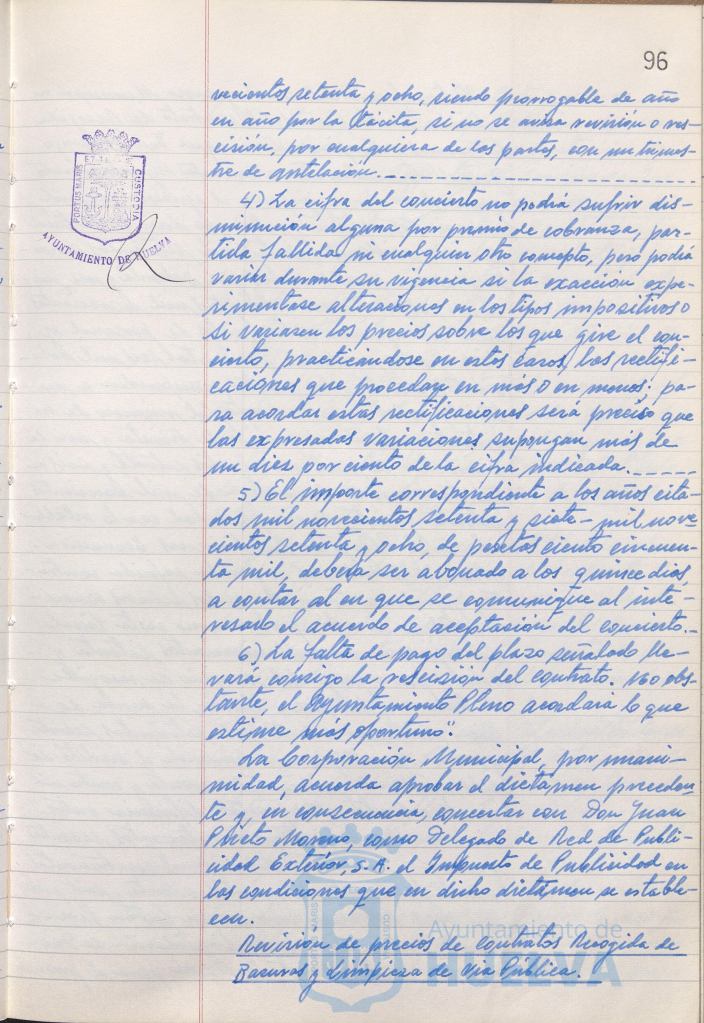 96
vecientos setenta y ocho, siendo prorrogable de año
en año por la tácita, si no se avisa revisión o res-
cisión, por cualquiera de las partes, con un trimes-
tre de antelación.
4) La cifra del concierto no podrá sufrir dis-
minución alguna por premio de cobranza, par-
tida fallida ni cualquier otro concepto, pero podrá
variar durante su vigencia si la exacción expe-
rimentase alteraciones en los tipos impositivos o
si variasen los precios sobre los que gire el con-
cierto, practicándose en estos casos, las rectifi-
caciones que procedan en más o en menos; pa-
ra acordar estas rectificaciones será preciso que
las expresadas variaciones supongan más de
un diez por ciento de la cifra indicada.
5) El importe correspondiente a los años cita-
dos mil novecientos setenta y siete - mil nove
cientos setenta y ocho, de pesetas ciento cincuen-
ta mil, deberá ser abonado a los quince días,
a contar al en que se comunique al inte-
resado el acuerdo de aceptación del concierto.-
6) La falta de pago del plazo señalado lle-
vará consigo la rescisión del contrato. No obs-
tante, el Ayuntamiento Pleno acordará lo que
estime más oportuno".
La Corporación Municipal, por unani-
midad, acuerda aprobar el dictámen preceden-
te y, en consecuencia, concertar con Don Juan
Prieto Moreno, como Delegado de Red de Publi-
cidad Exterior, S.A. el Impuesto de Publicidad en
las condiciones que en dicho dictámen se estable-
cen.
Revisión de precios de contratos Recogida de
Basuras y Limpieza de Vía Pública.
PORTUS MARIS
CUSTODIA
AYUNTAMIENTO DE HUELVA
Ayuntamiento de
HUELVA